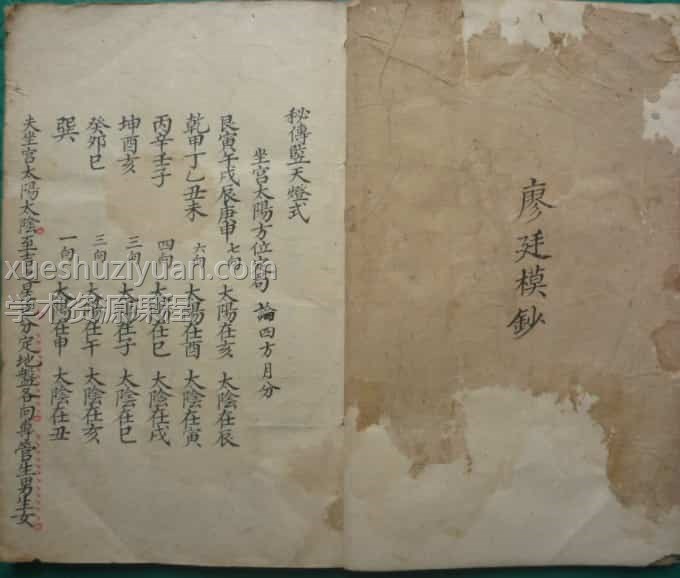 廖廷模鈔
秘傳竪天燈式
坐宮太陽方位定局 論四方月分
艮寅午戌辰庚申 七向 太陽在亥 太陰在辰
乾甲丁乙丑未 六向 太陽在酉 太陰在寅
丙辛壬子 四向 太陽在巳 太陰在戌
坤酉亥 三向 太陽在子 太陰在巳
癸卯巳 三向 太陽在午 太陰在亥
巽 一向 太陽在申 太陰在丑
夫坐宮太陽太陰至吉 分定地盤各向專管生男生女
xueshuziyuan.com
学术资源课程